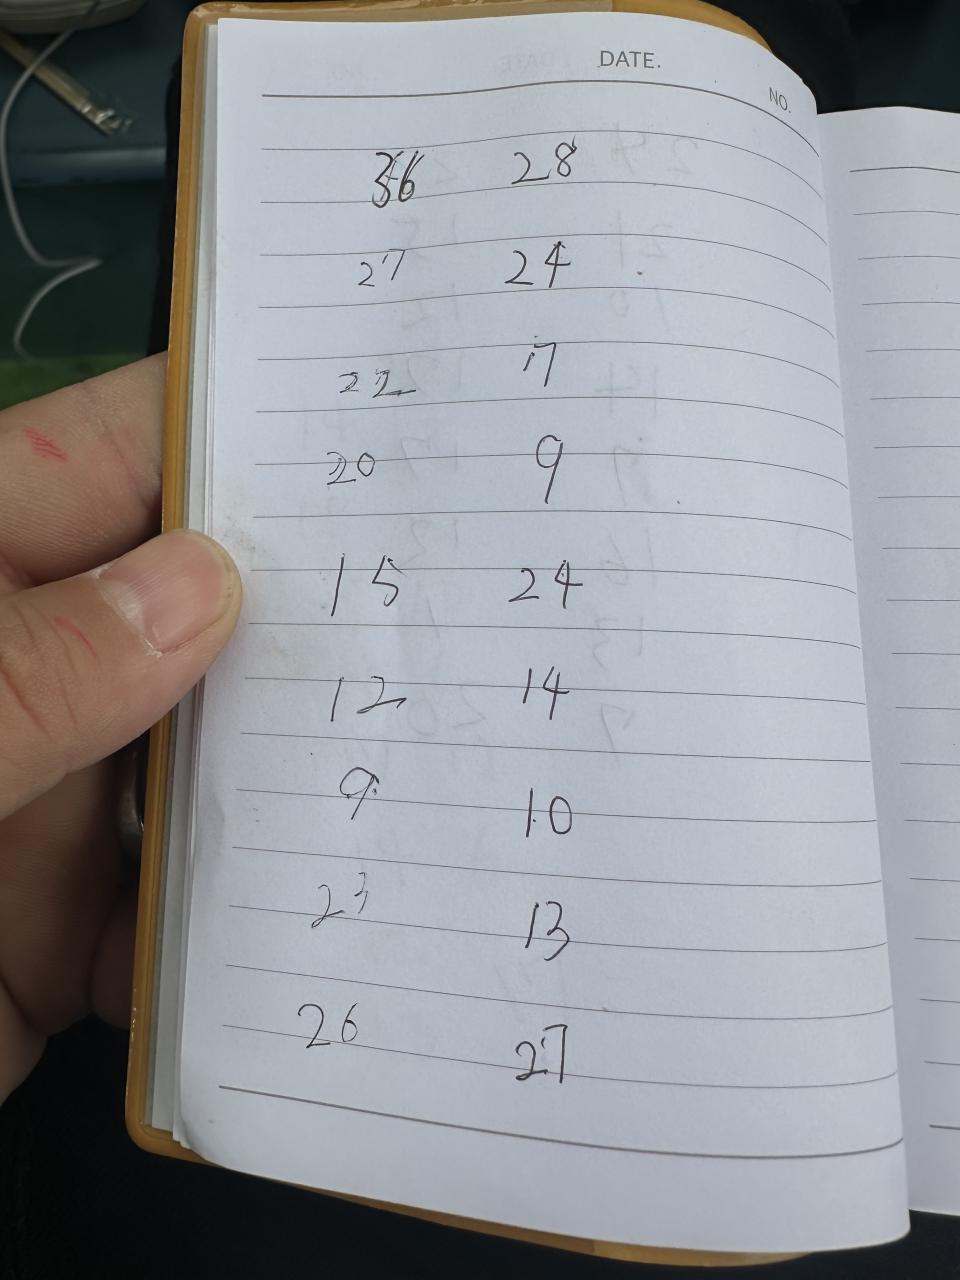 DATE.
NO.
36 28
27 24
22 17
20 9
15 24
12 14
9 10
23 13
26 27